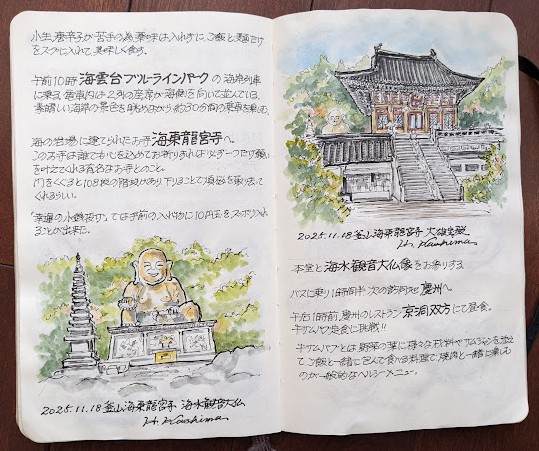 小生、唐辛子が苦手の為薬味は入れずに、ご飯と麺だけ
をスープに入れて、美味しく食す。
午前10時 海雲台ブルーラインパークの海岸列車
に乗る。客車内は2列の座席が海側を向いて並んでいる。
素晴しい海岸の景色を眺めながら、約30分間の乗車を楽しむ。
海の岩場に建てられたお寺 海東龍宮寺へ。
このお寺は誰でも心を込めてお祈りすれば必ず一つだけ願い
を叶えてくれる有名なお寺とのこと。
門をくぐると108段の階段があり下りることで煩悩を取り去って
くれるらしい。
「幸運の小銭投げ」では手前の入れ物に10円玉をスッポリ入れ
ることが出来た。
2025.11.18 釜山海東龍宮寺 海水観音大仏
H. Kashima
2025.11.18 釜山海東龍宮寺 大雄宝殿
H. Kashima
本堂と海水観音大仏像をお参りする
バスに乗り1時間半 次の訪問地 慶州へ。
午后1時前、慶州のレストラン 京洞双方にて昼食。
サムパプ定食に挑戦!!
サムパプとは野菜の葉に様々な
ご飯と一緒に包んで食べる料理で、焼肉と一緒に楽しむ
のが一般的なヘルシーメニュー。